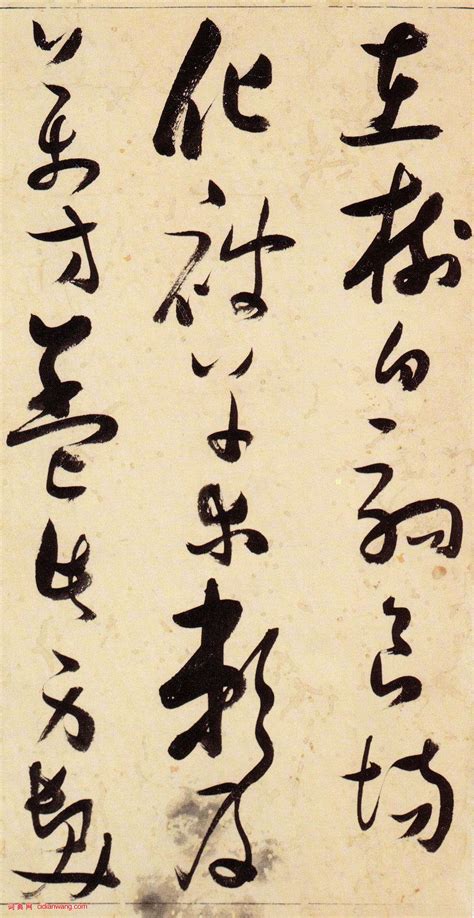 在樹白駒食場
化被草木賴及
萬方蓋此身髮
词典网 cidianwang.com